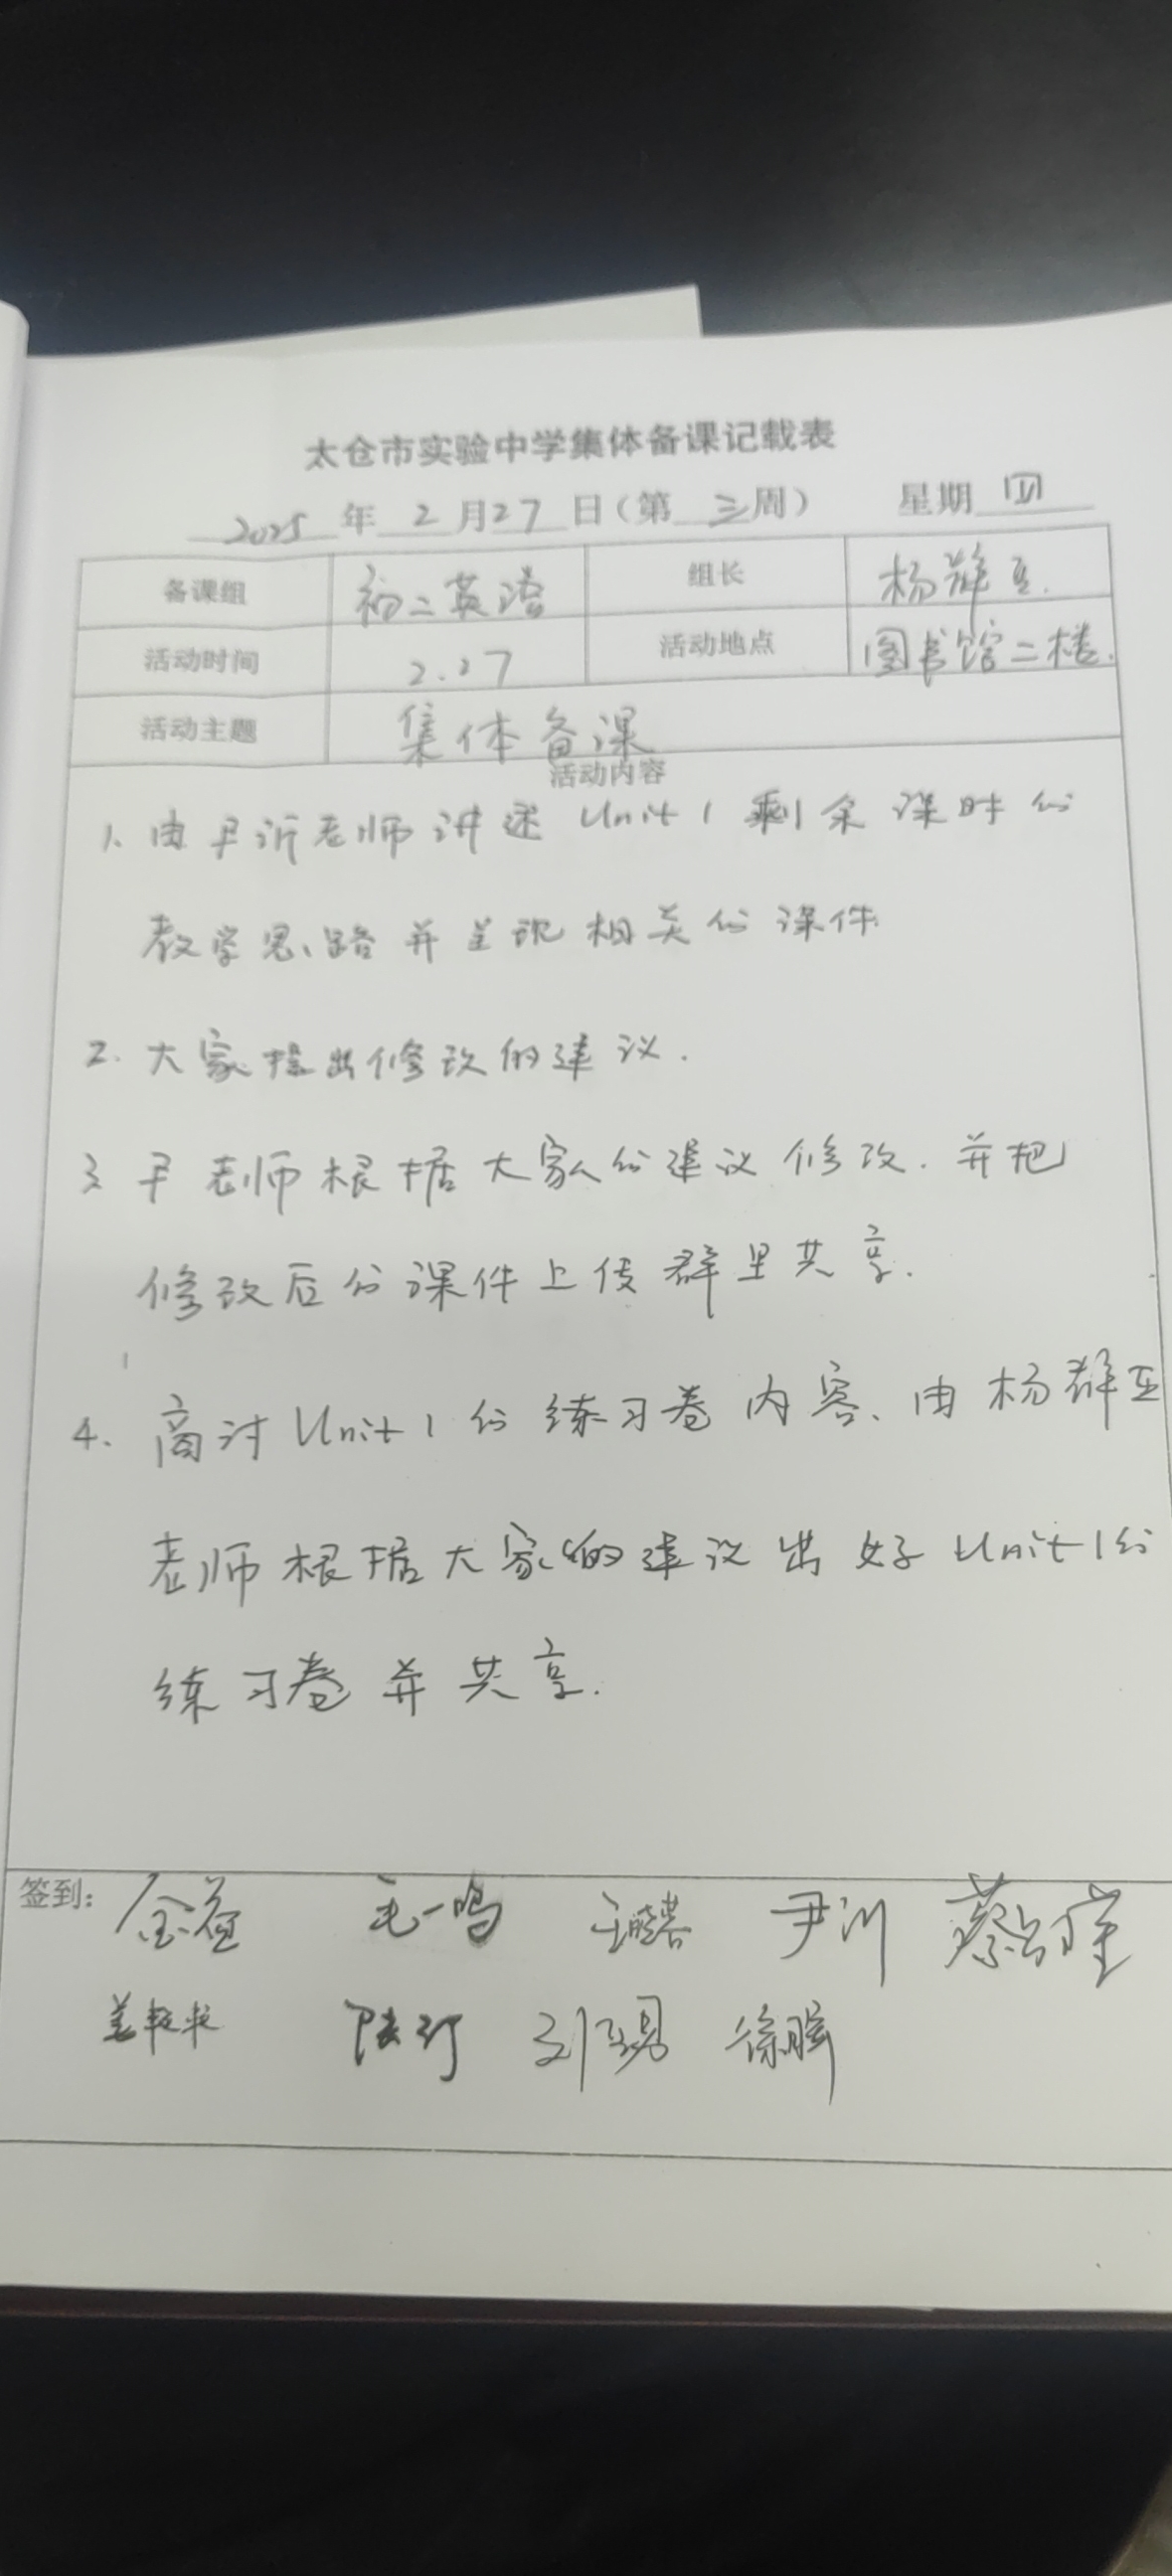 太仓市实验中学集体备课记载表
2025 年 2 月 27 日（第 三 周） 星期 四
备课组 初二英语 组长 杨群亚.
活动时间 2.27 活动地点 图书馆二楼.
活动主题 集体备课
活动内容
1. 由尹沂老师讲述 Unit 1 剩余课时的
教学思路并呈现相关的课件.
2. 大家提出修改的建议.
3 尹老师根据大家的建议修改. 并把
修改后的课件上传群里共享.
4. 商讨 Unit 1 的练习卷内容、由杨群亚
老师根据大家的建议出好 Unit 1 的
练习卷并共享.
签到: 金益 毛一鸣
徐晖